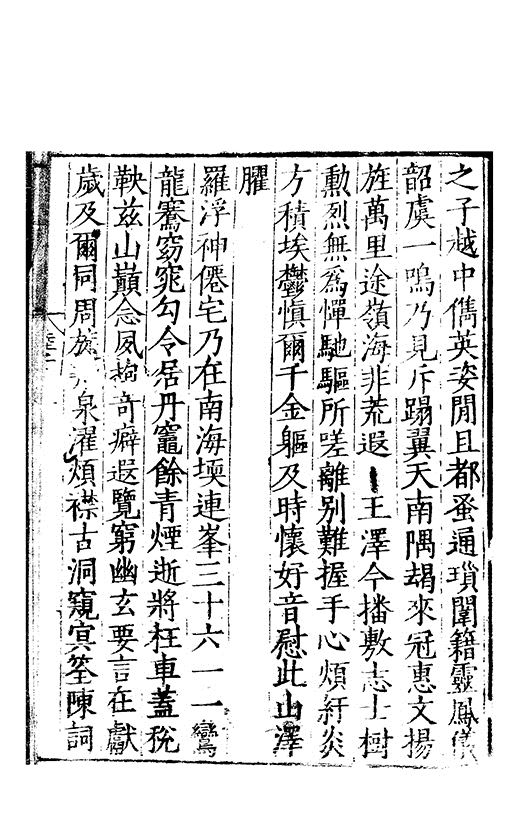 之子越中儁英姿閒且都蚤通瑣闈籍靈鳳儀
韶虞一鳴乃見斥蹋翼天南隅朅來冠惠文揚
旌萬里途嶺海非荒遐王澤今播敷志士樹
勲烈無爲憚馳驅所嗟離別難握手心煩紆炎
方積埃鬱慎爾千金軀及時懷好音慰此山澤
臞
羅浮神僊宅乃在南海堧連峯三十六一一鸞
龍騫窈窕勾令居丹竈餘青煙逝將枉車蓋稅
鞅兹山巔念夙抱奇癖遐覽窮幽玄要言在獻
歲及爾同周旋泉濯煩襟古洞窺冥筌陳詞